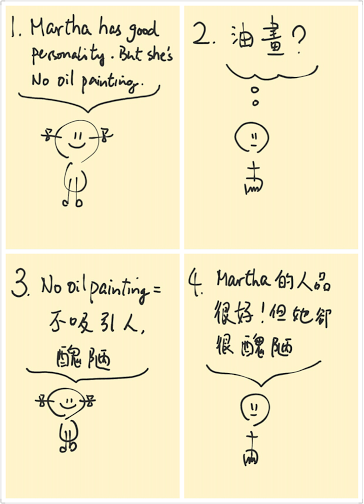 1. Martha has good
personality. But she's
No oil painting.
2. 油畫?
3. No oil painting =
不吸引人,
醜陋
4. Martha 的人品
很好!但她卻
很醜陋